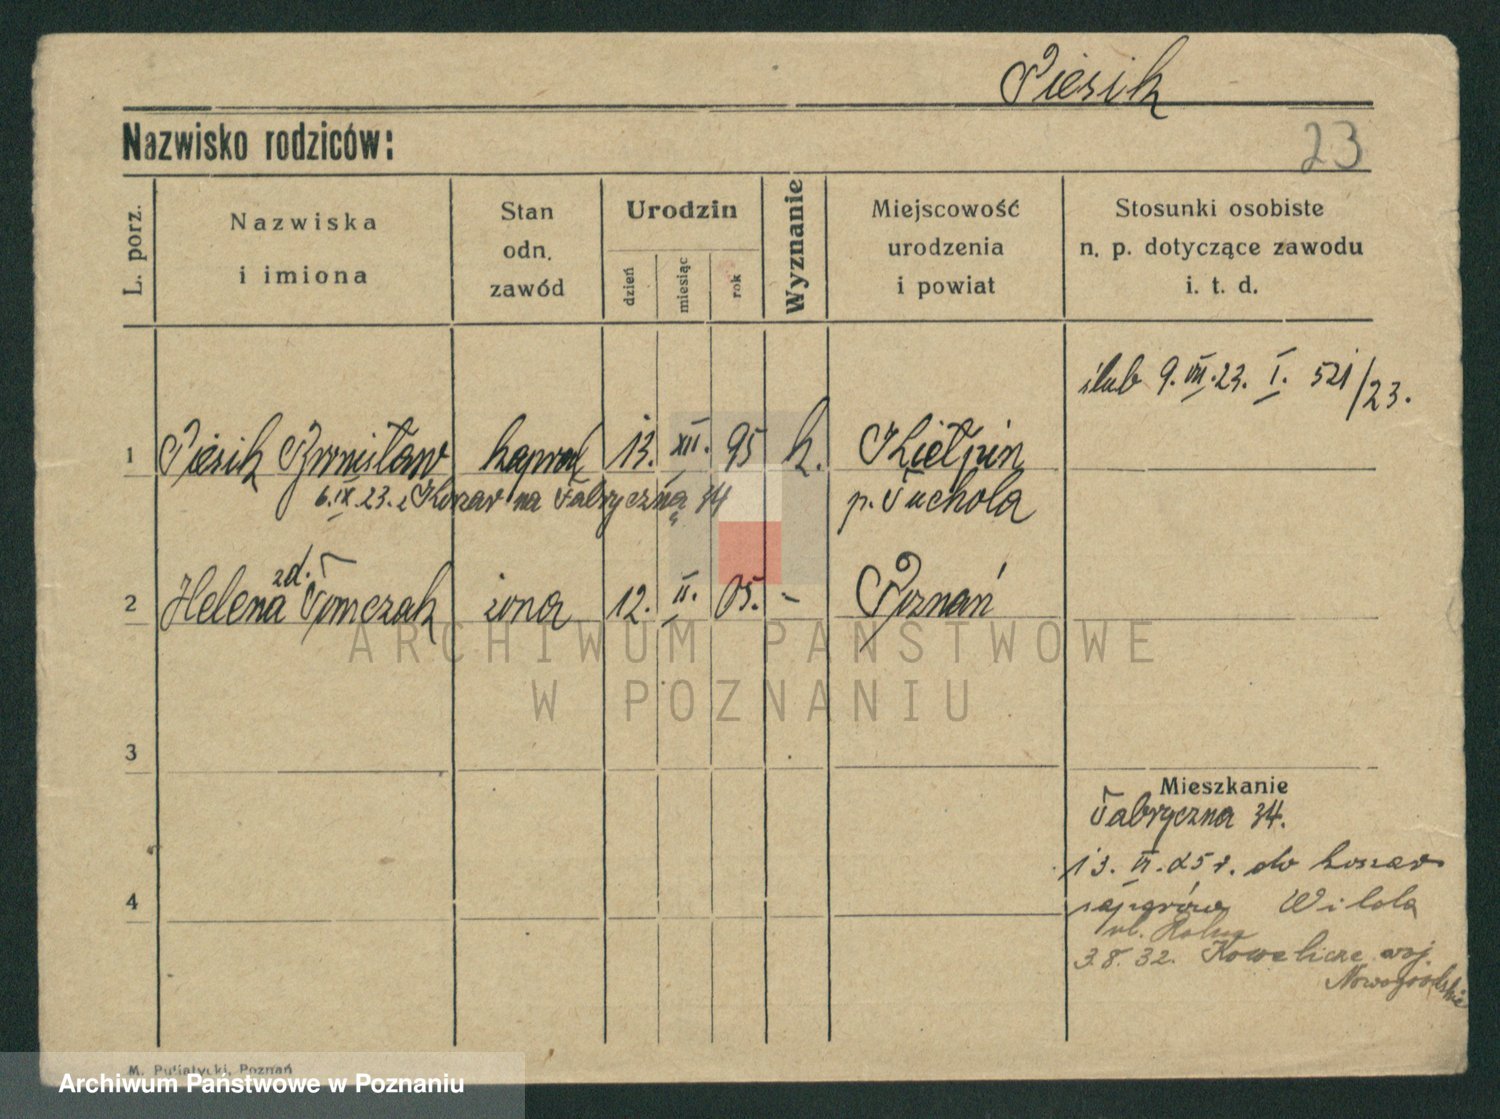 Piesik
Nazwisko rodziców:
23
L. porz.
Nazwiska
i imiona
Stan
odn.
zawód
Urodzin
dzień
miesiąc
rok
Wyznanie
Miejscowość
urodzenia
i powiat
Stosunki osobiste
n. p. dotyczące zawodu
i. t. d.
ślub 9. VIII. 23. I. 521/23.
1 Piesik Bronisław kapral 13. XII. 95 k. Kiełpin
6. IX. 23. z Koszar na Fabryczną 34 p. Tuchola
zd.
2 Helena Tomczak żona 12. II. 05. - Poznań
ARCHIWUM PAŃSTWOWE
W POZNANIU
3
Mieszkanie
Fabryczna 34.
13. VI. 25 r. do koszar
4
saperów Wilda
ul. Rolna
3.8.32. woj.
Nowogródzkie
M. Putiatycki, Poznań
Archiwum Państwowe w Poznaniu